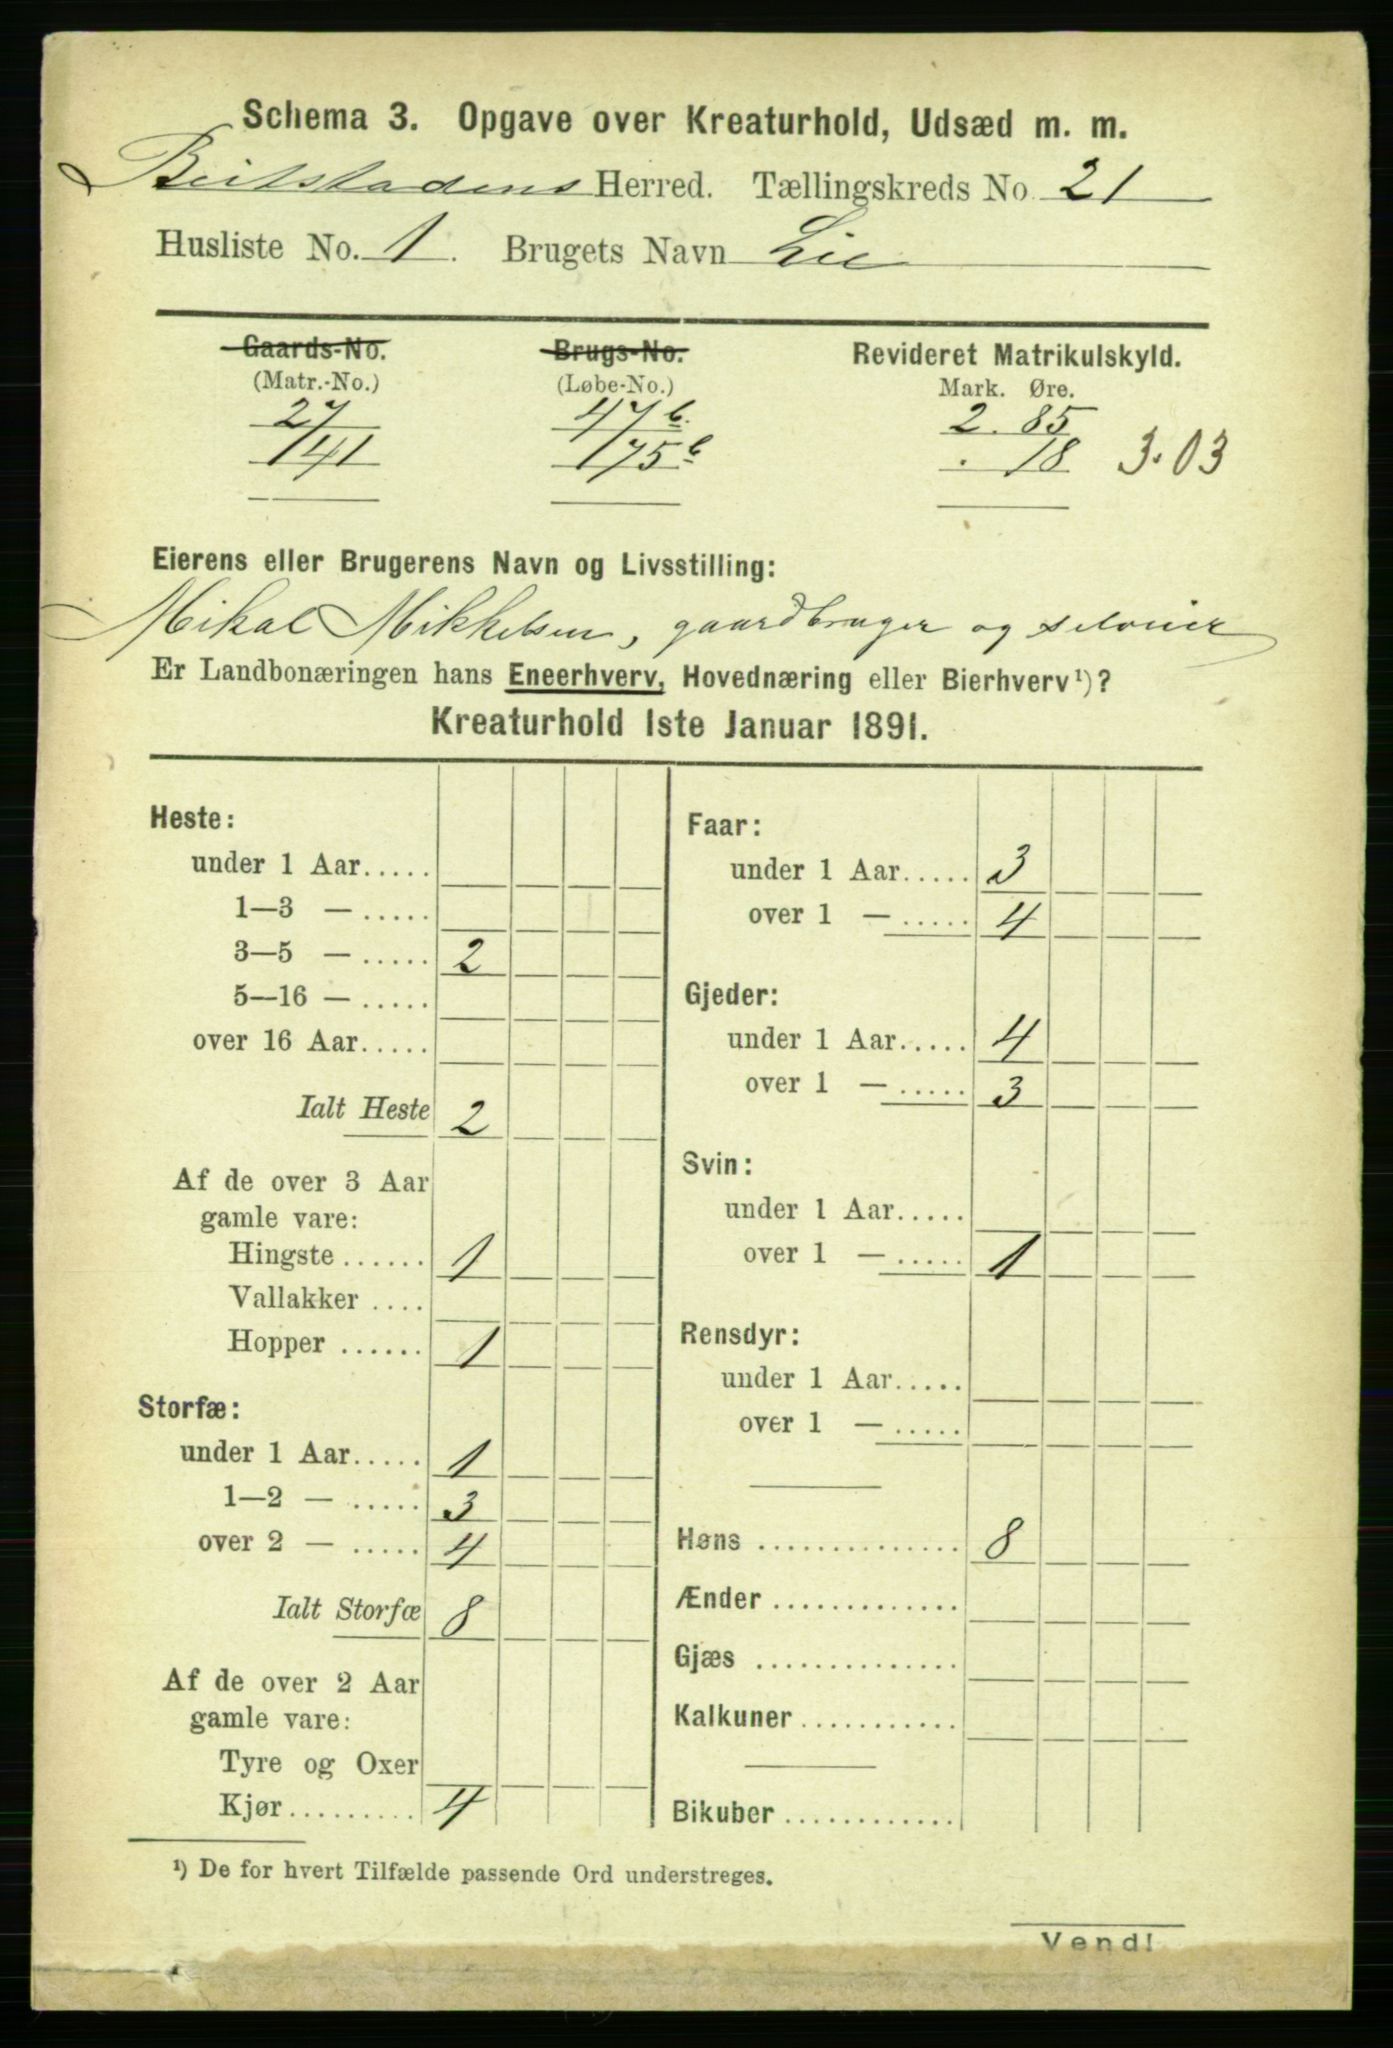 Schema 3. Opgave over Kreaturhold, Udsæd m. m.
Beitstadens Herred. Tællingskreds No. 21
Husliste No. 1. Brugets Navn Lie
Gaards-No. Brugs-No. Revideret Matrikulskyld.
(Matr.-No.) (Løbe-No.) Mark. Øre.
27 47 b. 2. 85
141 175 b . 18 3.03
Eierens eller Brugerens Navn og Livsstilling:
Mikal Mikkelsen, gaardbruger og selveier
Er Landbonæringen hans Eneerhverv, Hovednæring eller Bierhverv ¹)?
Kreaturhold 1ste Januar 1891.
Heste:
under 1 Aar.....
1—3 — .....
3—5 — ..... 2
5—16 — .....
over 16 Aar.....
Ialt Heste 2
Af de over 3 Aar
gamle vare:
Hingste ...... 1
Vallakker ....
Hopper ...... 1
Storfæ:
under 1 Aar..... 1
1—2 — ..... 3
over 2 — ..... 4
Ialt Storfæ 8
Af de over 2 Aar
gamle vare:
Tyre og Oxer
Kjør......... 4
Faar:
under 1 Aar..... 3
over 1 — ..... 4
Gjeder:
under 1 Aar..... 4
over 1 — ..... 3
Svin:
under 1 Aar.....
over 1 — ..... 1
Rensdyr:
under 1 Aar.....
over 1 — .....
Høns .............. 8
Ænder .............
Gjæs ..............
Kalkuner...........
Bikuber ............
¹) De for hvert Tilfælde passende Ord understreges.
Vend!